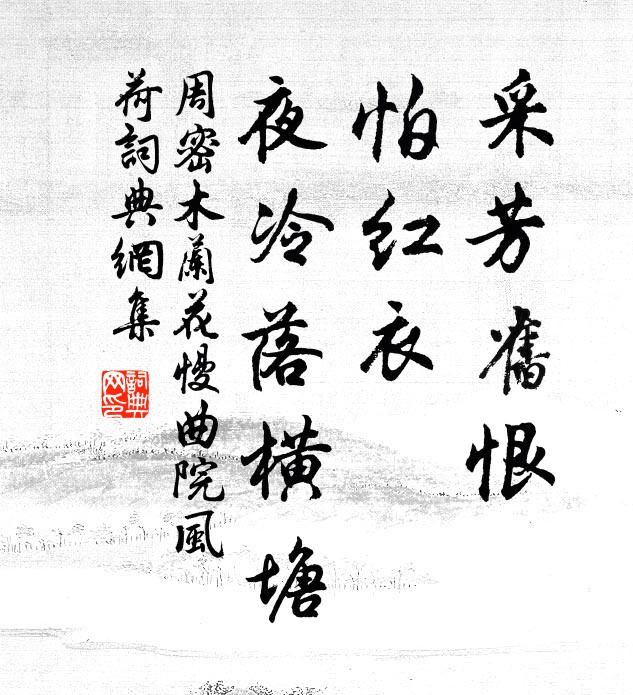 采芳舊恨
怕紅衣
夜冷落橫塘
周密木蘭花慢曲院風
荷詞典網集
詞典
网印